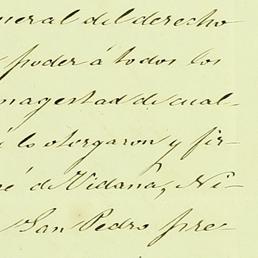 neral del derecho
poder á todos los
magestad de cual-
í lo otorgaron y fir-
é de Vidaña, Ni-
San Pedro pre